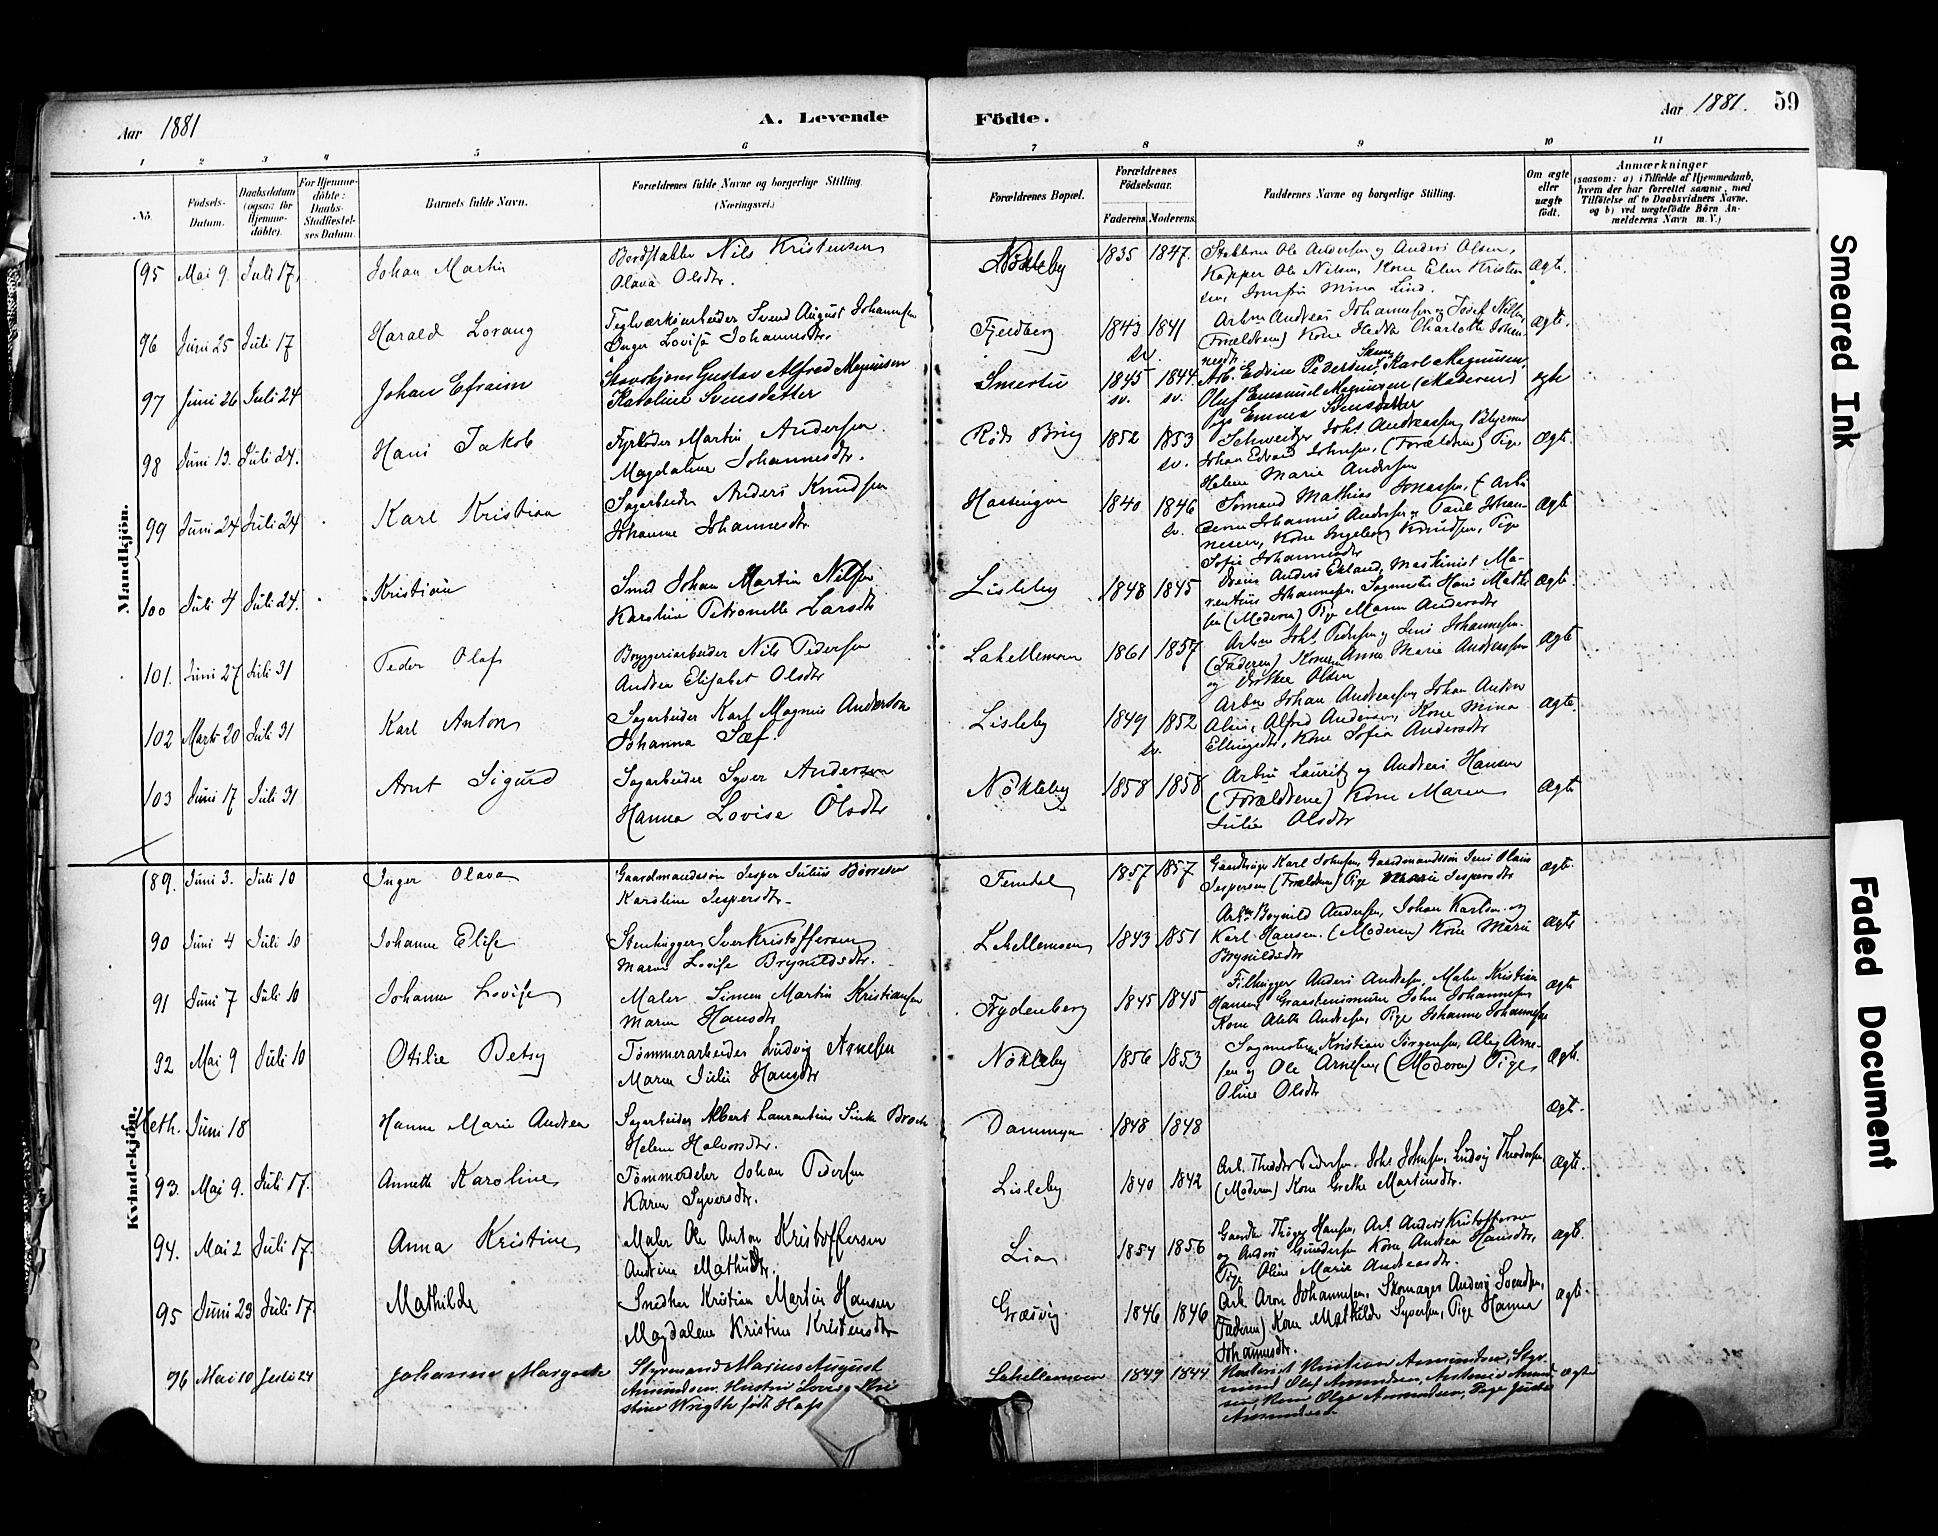 Aar 1881
A. Levende
Födte.
Aar 1881. 59
1 2 3 4 5 6 7 8 9 10 11
No.
Födsels-Datum.
Daabsdatum (ogsaa for Hjemme-döbte).
For Hjemme-döbte: Daabs-Stadfæstel-ses Datum.
Barnets fulde Navn.
Forældrenes fulde Navne og borgerlige Stilling. (Næringsvei.)
Forældrenes Bopæl.
Forældrenes Födselsaar.
Faderens. Moderens.
Faddernes Navne og borgerlige Stilling.
Om ægte eller uægte födt.
Anmærkninger
(saasom: a) i Tilfælde af Hjemmedaab, hvem der har forrettet samme, med Tilföielse af to Daabsvidners Navne, og b) ved uægtefödte Börn An-melderens Navn m. V.)
Mandkjön.
95 Mai 9. Juli 17, Johan Martin
Bordstabler Nils Kristensen
Olava Olsdtr.
Nökleby 1835 1847.
Stabberne Ole Andersen og Anders Olsen,
Kapper Ole Nilsen, Kone Elen Kristen
sen, Jomfru Mina Lind.
Ægte.
96 Juni 25 Juli 17 Harald Lorang
Teglværksarbeider Svend August Johannesen
Inger Lovise Johannesdtr.
Fjeldberg 1843 sv. 1841
Arbn Andreas Johannesen og Josef Nilsen
(Forældrene) Kone Hedda Charlotte Johan-
nesdtr.
Ægte.
97 Juni 26 Juli 24 Johan Efraim
Gustav Alfred Magnusen
Karoline Svensdatter
Smertu 1845 sv. 1844. sv.
Arb. Edvin Pedersen, Karl Magnusen,
Oluf Emanuel Magnusen (Moderen)
Pige Emma Svensdatter
ægte
98 Juni 13. Juli 24. Hans Jakob
Fyrböder Martin Andersen.
Magdalene Johannesdtr.
Röds Brug 1852 1853 sv.
Schweitzer Johs. Andreassen,
Johan Edvard Johnsen, (Forældren) Pige
Helene Marie Andersen
Ægte.
99 Juni 24 Juli 24 Karl Kristian
Sagarbeider Anders Knudsen
Johanne Johannesdtr
Hassingen 1840 1846 sv.
Sömand Mathias Jonassen, Arbei
derne Johannes Andersen, Paul Johan-
nesen, Kone Ingeborg Knudsen, Pige
Sofie Johannesdtr
Ægte
100 Juli 4 Juli 24. Kristian
Smed Johan Martin Nilsen
Karoline Petronelle Larsdtr
Lisleby 1848 1845
Anders Ekland, Maskinist Ma-
rentius Johannesen, Sagmester Hans Math
sen (Moderen) Pige Maren Andersdtr
Ægte.
101. Juni 27 Juli 31 Peder Olaf
Bryggeriarbeider Nils Pedersen
Andrea Elisabet Olsdtr
Lahellemoen 1861 1857
Arbn Johs. Pedersen og Jens Johannesen.
(Faderen) Konen Anne Marie Andreassen
og Dorthea Olsen
Ægte
102 Marts 20 Juli 31 Karl Anton
Sagarbeider Karl Magnus Anderson
Johanna Sæf.
Lisleby 1849 1852 sv.
Arbn Johan Andreassen, Johan Anton
Alin, Alfred Anderson, Kone Mina
Ellingsdtr, Kone Sofia Andersdtr
Ægte.
103 Juni 17 Juli 31 Arnt Sigurd
Sagarbeider Syver Andersen
Hanna Lovise Olsdtr
Nökleby 1858 1858
Arbn Lauritz og Andreas Hansen
(Forældrene) Kone Maren
Julie Olsdtr
Ægte
Kvindekjön.
89. Juni 3. Juli 10 Inger Olava
Gaardmandssön Jesper Julius Börresen
Karoline Jespersdtr.
Femdal 1857 1857
Gaardbruger Karl Johnsen, Gaardmandssön Jens Olaus
Jespersen (Forældren) Pige Marie Jespersdtr
Ægte.
90 Juni 4 Juli 10 Johanne Elise
Stenhugger Iver Kristoffersen
Maren Lovise Brynildsdtr.
Lahellemoen 1843 1851
Arbn Brynild Andersen, Johan Karlsen og
Karl Hansen. (Moderen) Kone Marie
Brynildsdtr
Ægte
91 Juni 7 Juli 10 Johanne Lovise
Maler Simen Martin Kristiansen
Maren Hansdtr
Frydenberg 1845 1845
Filhugger Anders Andresen, Maler Kristian
Hansen, Graastensmurer John Johannesen,
Kone Alette Andresen, Pige Johanne Johannesen
Ægte
92 Mai 9 Juli 10 Otilie Betsy
Tömmerarbeider Ludvig Arnesen
Maren Julie Hansdtr
Nökleby 1856 1853
Sagmester Kristian Jörgensen, Arne-
sen og Ole Arnesen, (Moderen) Pige
Oline Olsdtr
Ægte.
Meth. Juni 18 Hanne Marie Andrea
Sagarbeider Albert Laurentius Broch
Helene Halvorsdtr.
Dammyr 1848 1848 Ægte.
93. Mai 9. Juli 17. Annette Karoline
Tömmerdeler Johan Pedersen
Karen Syversdtr.
Lisleby 1840 1842
Arb. Theodor Pedersen. Johs Johnsen, Ludvig Theodorsen,
(Moderen) Kone Grethe Martinsdtr.
Ægte.
94. Mai 2 Juli 17. Anna Kristine
Maler Ole Anton Kristoffersen
Andrine Mathisdtr.
Lia 1854 1856
Thöger Hansen, Arb. Anders Kristoffersen
og Anders Gundersen Kone Andrea Hansdtr,
Pige Oline Marie Andreasdtr.
Ægte.
95 Juni 23 Juli 17. Mathilde
Snedker Kristian Martin Hansen
Magdalene Kristine Kristensdtr
Græsvig 1846 1846
Arb. Aron Johannesen, Skomager Anders Svendsen,
(Faderen) Kone Mathilde Syversen, Pige Hanna
Johannesdtr.
Ægte.
96 Mai 10 Juli 24 Johanne Margrete
Styrmand Marius August
Amundsen. Hustru Lovise Kri
stine Wright født Hass
Lahellemoen 1849 1844
Kristian Amundsen, Styr-
mand Olaf Amundsen, Antonie Amund
sen, Kone Olga Amundsen, Pige
Amundsen
ægte
Smeared Ink
Faded Document